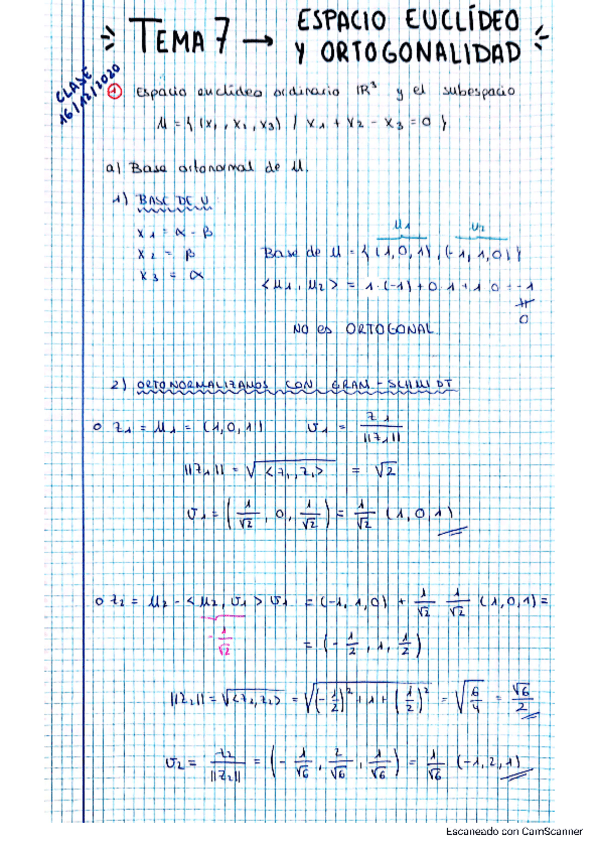 TEMA 7 → ESPACIO EUCLÍDEO
Y ORTOGONALIDAD
CLASE
16/12/2020
① Espacio euclídeo ordinario ℝ³ y el subespacio
U = { (x₁, x₂, x₃) / x₁ + x₂ - x₃ = 0 }
a) Base ortonormal de U.
1) BASE DE U
x₁ = α - β
x₂ = β
x₃ = α
u₁ u₂
Base de U = { (1,0,1), (-1,1,0) }
<u₁, u₂> = 1·(-1) + 0·1 + 1·0 = -1
≠
0
NO es ORTOGONAL
2) ORTONORMALIZAMOS CON GRAM-SCHMIDT
o z₁ = u₁ = (1,0,1) v₁ = z₁/||z₁||
||z₁|| = √<z₁, z₁> = √2
v₁ = (1/√2, 0, 1/√2) = 1/√2 (1,0,1)
o z₂ = u₂ - <u₂, v₁> v₁ = (-1,1,0) + 1/√2 1/√2 (1,0,1) =
-1/√2
= (-1/2, 1, 1/2)
||z₂|| = √<z₂, z₂> = √((-1/2)² + 1 + (1/2)²) = √(6/4) = √6/2
v₂ = z₂/||z₂|| = (-1/√6, 2/√6, 1/√6) = 1/√6 (-1,2,1)
Escaneado con CamScanner